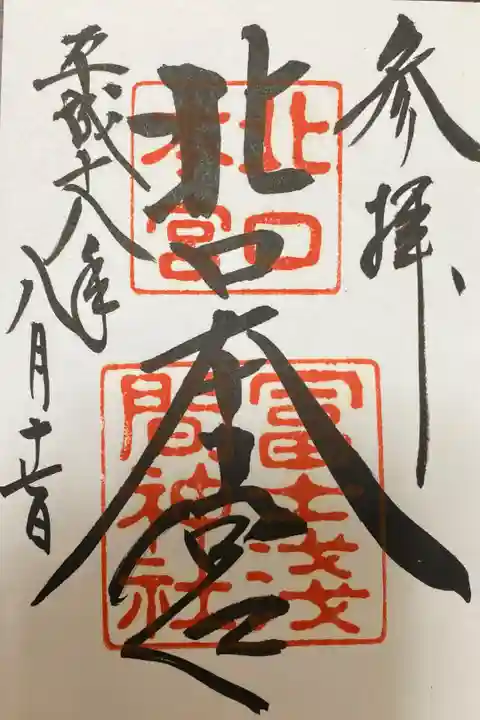 参拝
北口本宮
平成十八年
八月十六日
北口
本宮
冨士浅
間神社